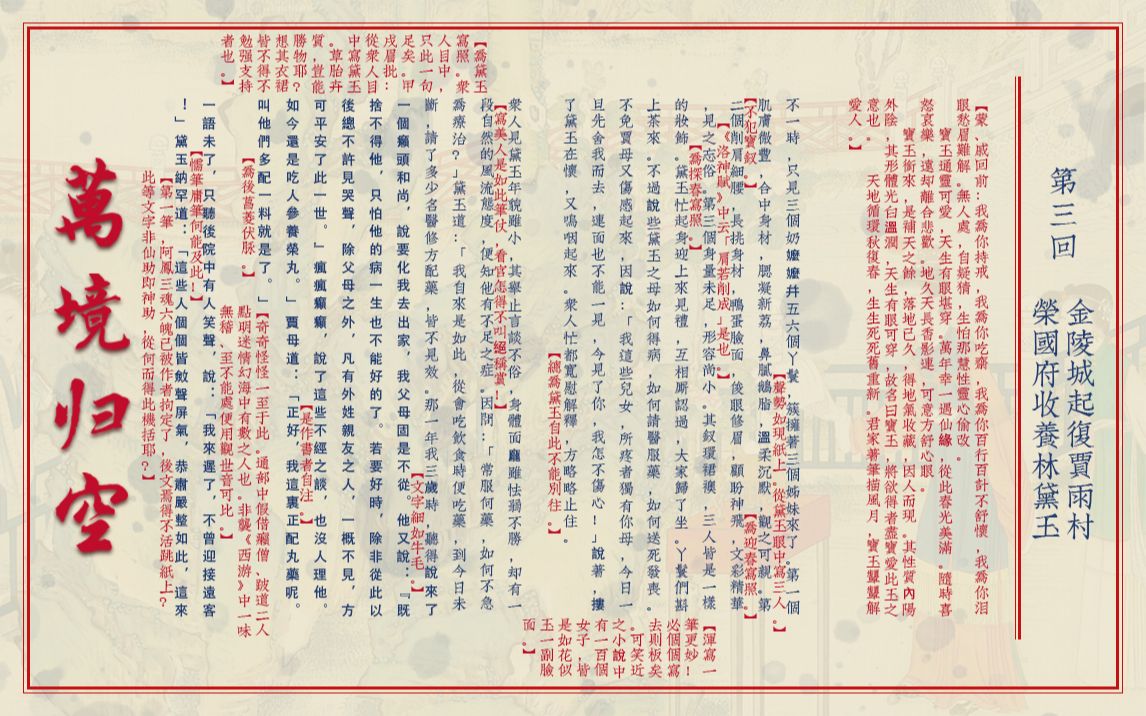 第三回
金陵城起復賈雨村
榮國府收養林黛玉
【蒙、戚回前：我爲你持戒，我爲你吃齋，我爲你百行百計不舒懷，我爲你泪
眼愁眉難解。無人處，自疑猜，生怕那慧性靈心偷改。
寶玉通靈可愛，天生有眼堪穿。萬年幸一遇仙緣，從此春光美滿。隨時喜
怒哀樂，遠却離合悲歡。地久天長香影連，可意方舒心眼。
寶玉銜來，是補天之餘，落地已久，得地氣收藏，因人而現。其性質內陽
外陰，其形體光白溫潤，天生有眼可穿，故名曰寶玉，將欲得者盡寶愛此玉之
意也。 天地循環秋復春，生生死死舊重新。君家著筆描風月，寶玉顰顰解
愛人。】
不一時，只見三個奶嬤嬤并五六個丫鬟，簇擁著三個姊妹來了。第一個
【聲勢如現紙上。從黛玉眼中寫三人。】
肌膚微豐，合中身材，腮凝新荔，鼻膩鵝脂，溫柔沉默，觀之可親。第
【不犯寶釵。】
【爲迎春寫照。】
二個削肩細腰，長挑身材，鴨蛋臉面，俊眼修眉，顧盼神飛，文彩精華
【《洛神賦》中云「肩若削成」是也。】
，見之忘俗。第三個身量未足，形容尚小。其釵環裙襖，三人皆是一樣
【爲探春寫照。】
的妝飾。黛玉忙起身迎上來見禮，互相厮認過，大家歸了坐。丫鬟們斟
【渾寫一
筆更妙！
必個個寫
去則板矣
。可笑近
之小說中
有一百個
女子，皆
是如花似
玉一副臉
面。】
上茶來。不過說些黛玉之母如何得病，如何請醫服藥，如何送死發喪。
不免賈母又傷感起來，因說：「我這些兒女，所疼者獨有你母，今日一
旦先舍我而去，連面也不能一見，今見了你，我怎不傷心！」說著，摟
了黛玉在懷，又嗚咽起來。衆人忙都寬慰解釋，方略略止住。
【總爲黛玉自此不能別往。】
衆人見黛玉年貌雖小，其舉止言談不俗，身體面龐雖怯弱不勝，却有一
【寫美人是如此筆仗，看官怎得不叫絕稱賞！】
【爲黛玉
寫照。衆
人目中，
只此一句
足矣。甲
戌眉批：
從衆人目
中寫黛玉
。草胎卉
質，豈能
勝物耶？
想其衣裙
皆不得不
勉强支持
者也。】
段自然的風流態度，便知他有不足之症。因問：「常服何藥，如何不急
爲療治？」黛玉道：「我自來是如此，從會吃飲食時便吃藥，到今日未
斷，請了多少名醫修方配藥，皆不見效。那一年我三歲時，聽得說來了
【文字細如牛毛。】
一個癩頭和尚，說要化我去出家，我父母固是不從。他又說：『既
捨不得他，只怕他的病一生也不能好的了。若要好時，除非從此以
後總不許見哭聲，除父母之外，凡有外姓親友之人，一概不見，方
可平安了此一世。』瘋瘋癲癲，說了這些不經之談，也沒人理他。
【是作書者自注。】
如今還是吃人參養榮丸。」賈母道：「正好，我這裏正配丸藥呢。
【奇奇怪怪一至于此。通部中假借癩僧、跛道二人
點明迷情幻海中有數之人也。非襲《西游》中一味
無稽、至不能處便用觀世音可比。】
叫他們多配一料就是了。」
【爲後菖菱伏脉。】
一語未了，只聽後院中有人笑聲，說：「我來遲了，不曾迎接遠客
【懦筆庸筆何能及此！】
！」黛玉納罕道：「這些人個個皆斂聲屏氣，恭肅嚴整如此，這來
【第一筆，阿鳳三魂六魄已被作者拘定了，後文焉得不活跳紙上？
此等文字非仙助即神助，從何而得此機括耶？】
萬境归空